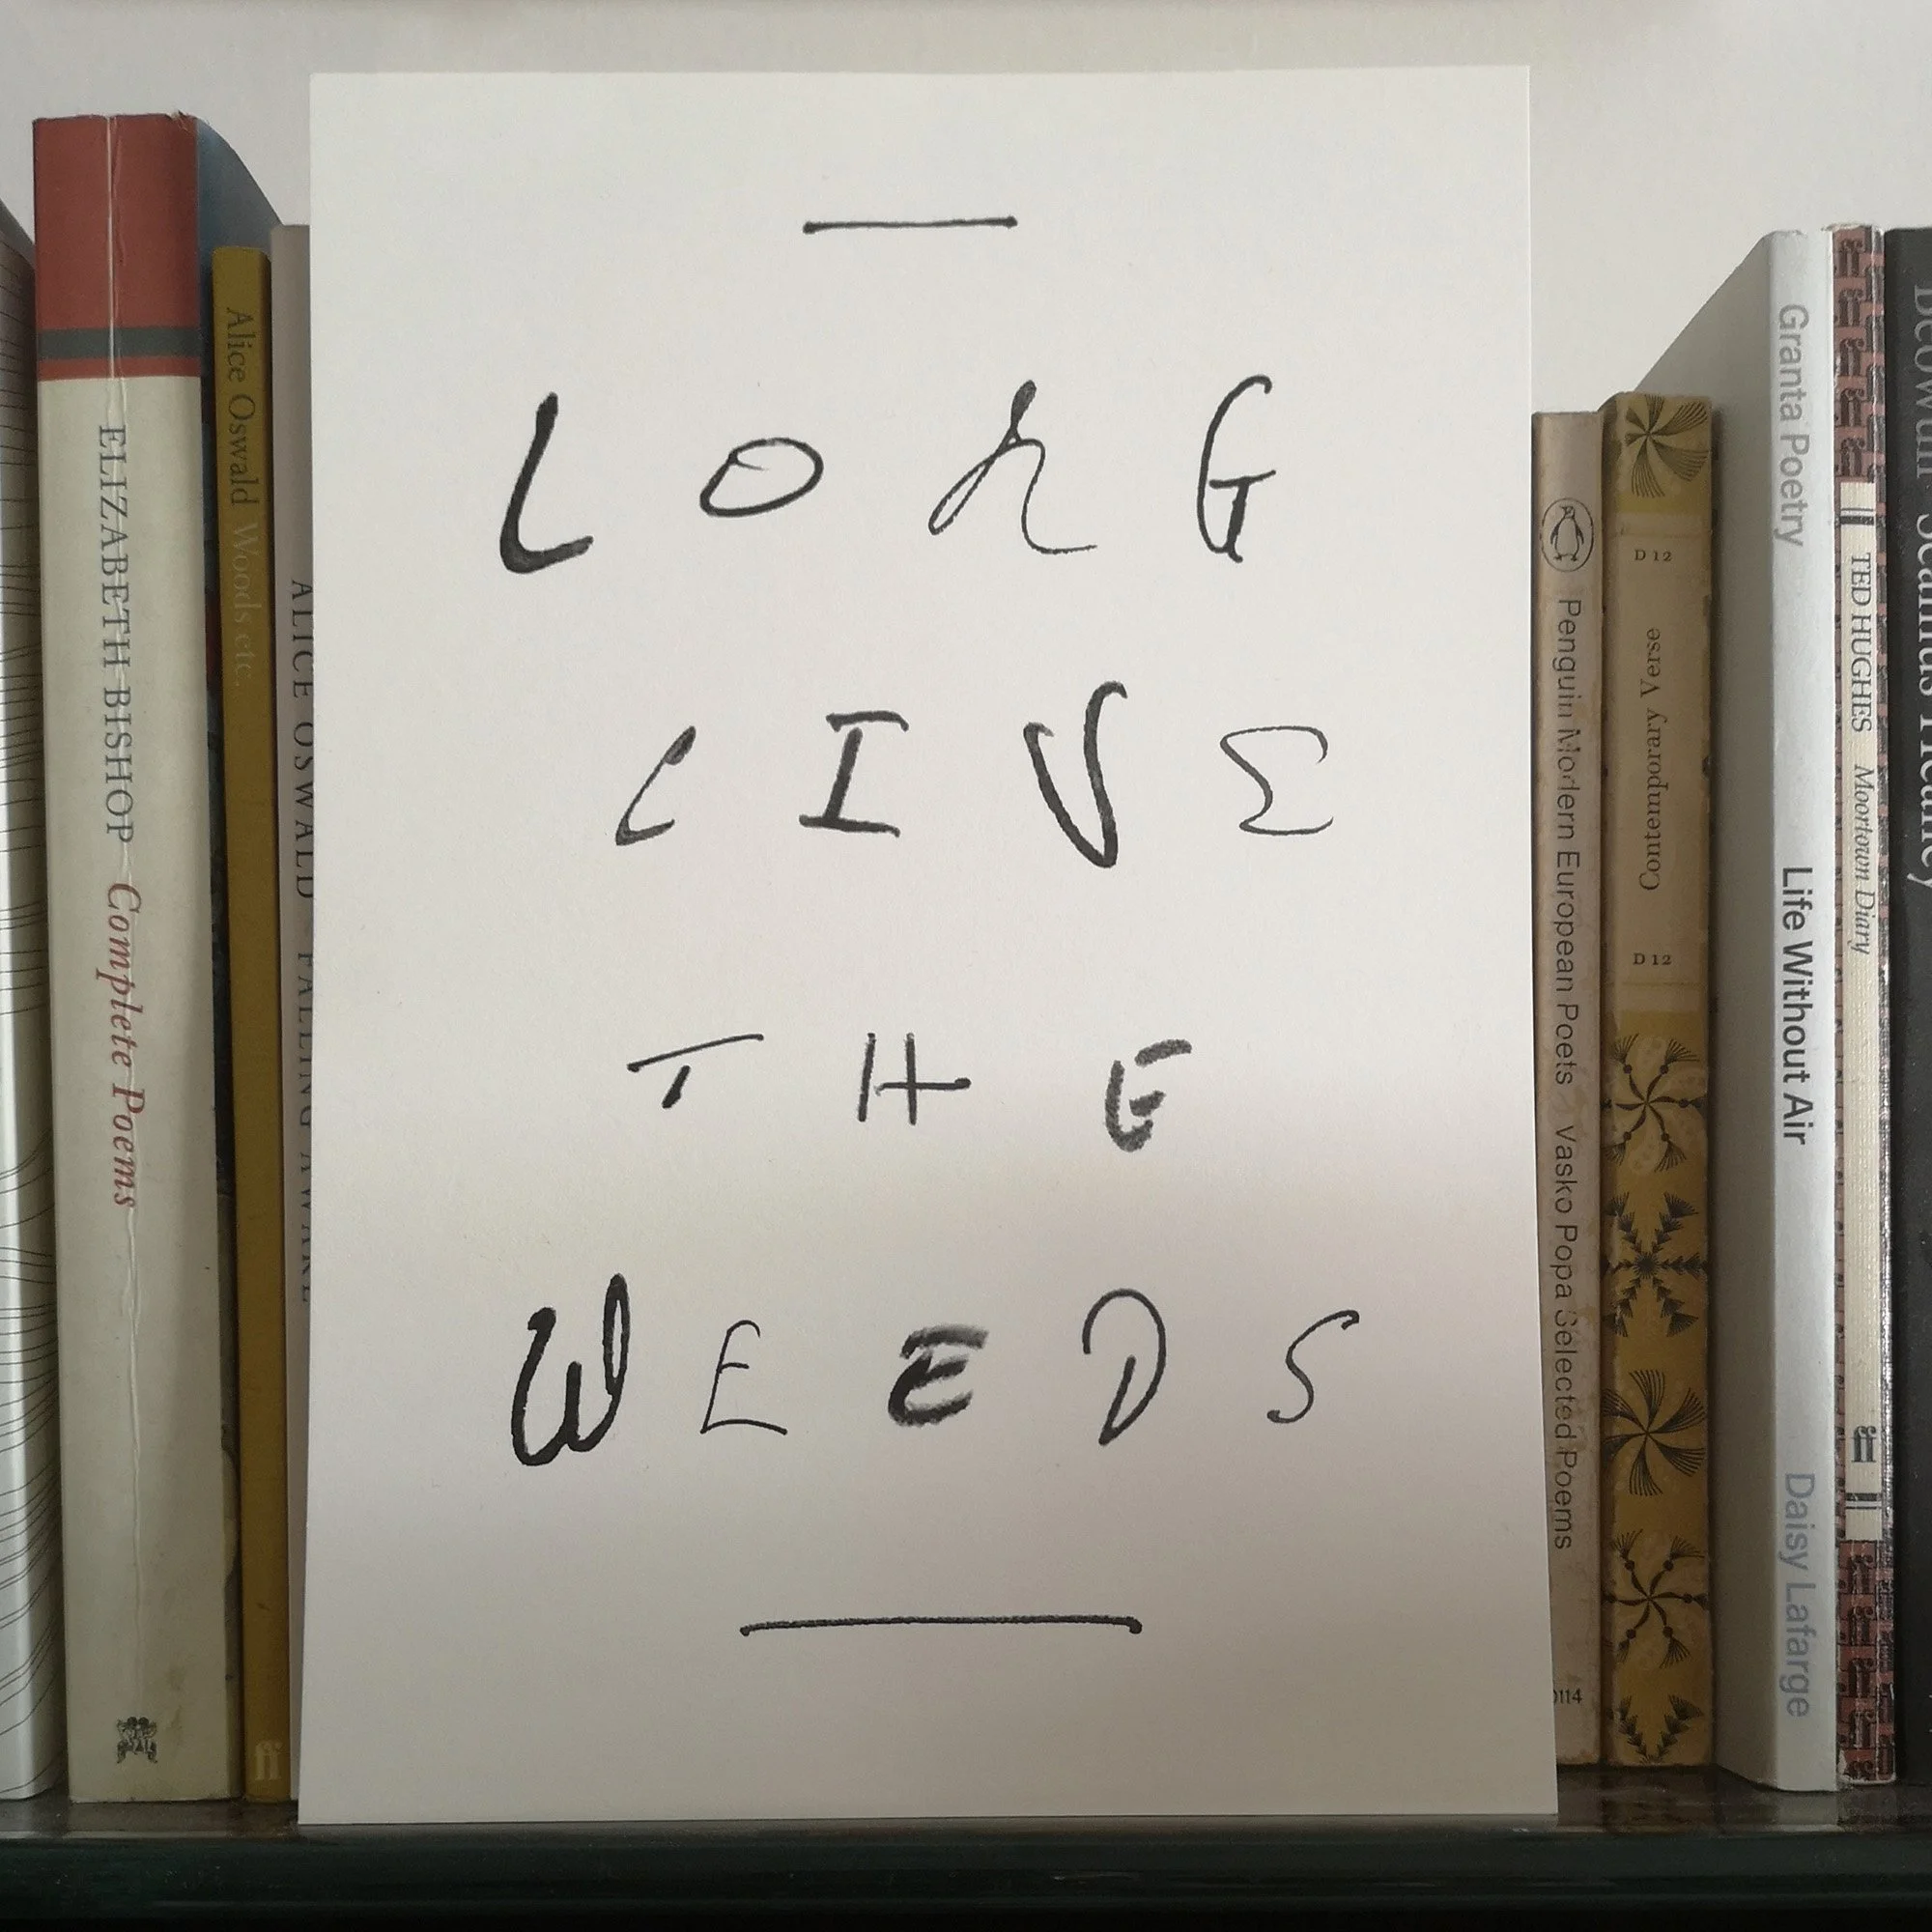 ELIZABETH BISHOP Complete Poems
Alice Oswald Woods etc.
ff
ALICE OSWALD FALLING AWAKE
LONG
LIVE
THE
WEEDS
Penguin Modern European Poets Vasko Popa Selected Poems
D 12
Contemporary Verse
D 12
Granta Poetry Life Without Air Daisy Lafarge
TED HUGHES Moortown Diary
ff
Beowulf Seamus Heaney